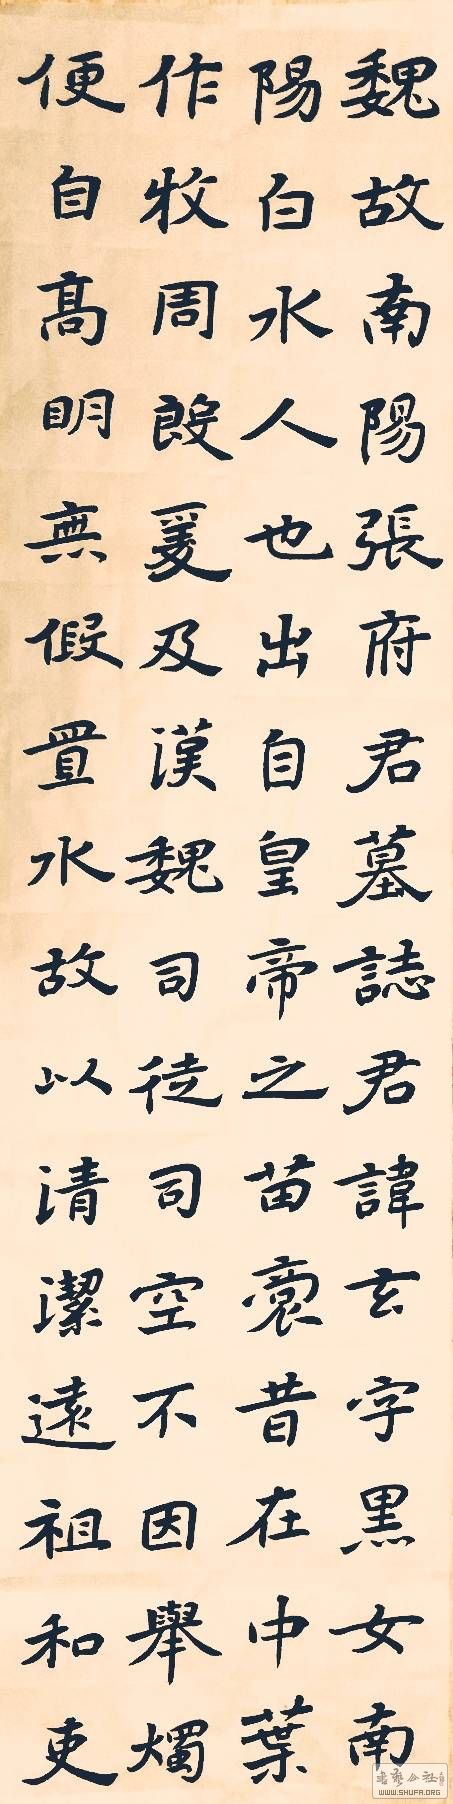 魏故南陽張府君墓誌君諱玄字黑女南
陽白水人也出自皇帝之苗裔昔在中葉
作牧周殷爰及漢魏司徒司空不因舉燭
便自髙眀無假置水故以清潔遠祖和吏
書藝公社
WWW.SHUFA.ORG